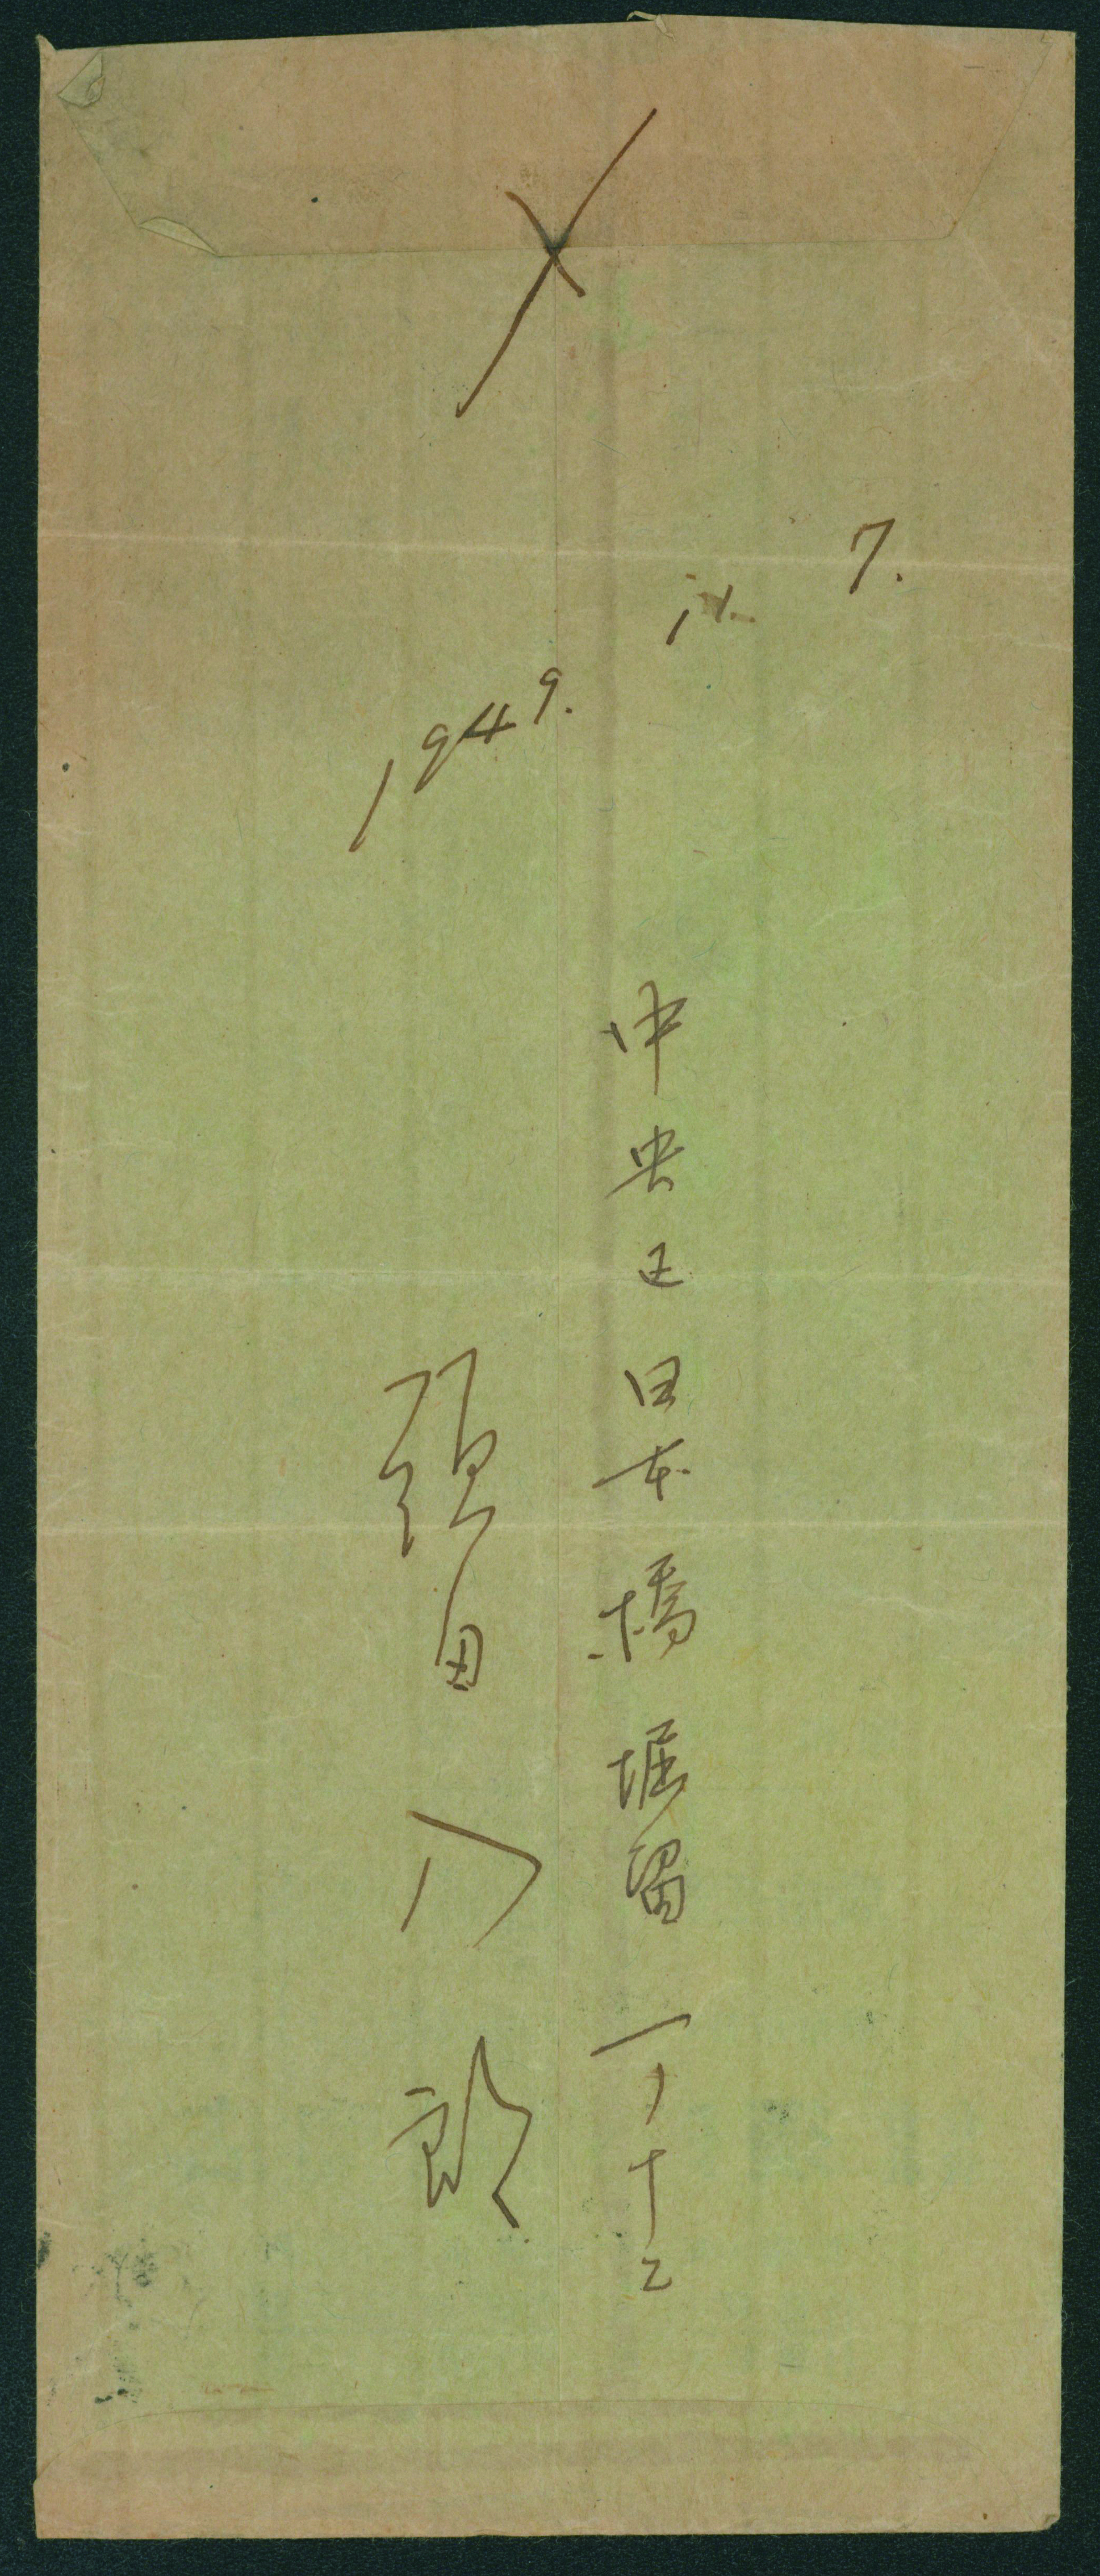 〆
1949. ix. 7.
中央区日本橋堀留一ノ十二
田八郎